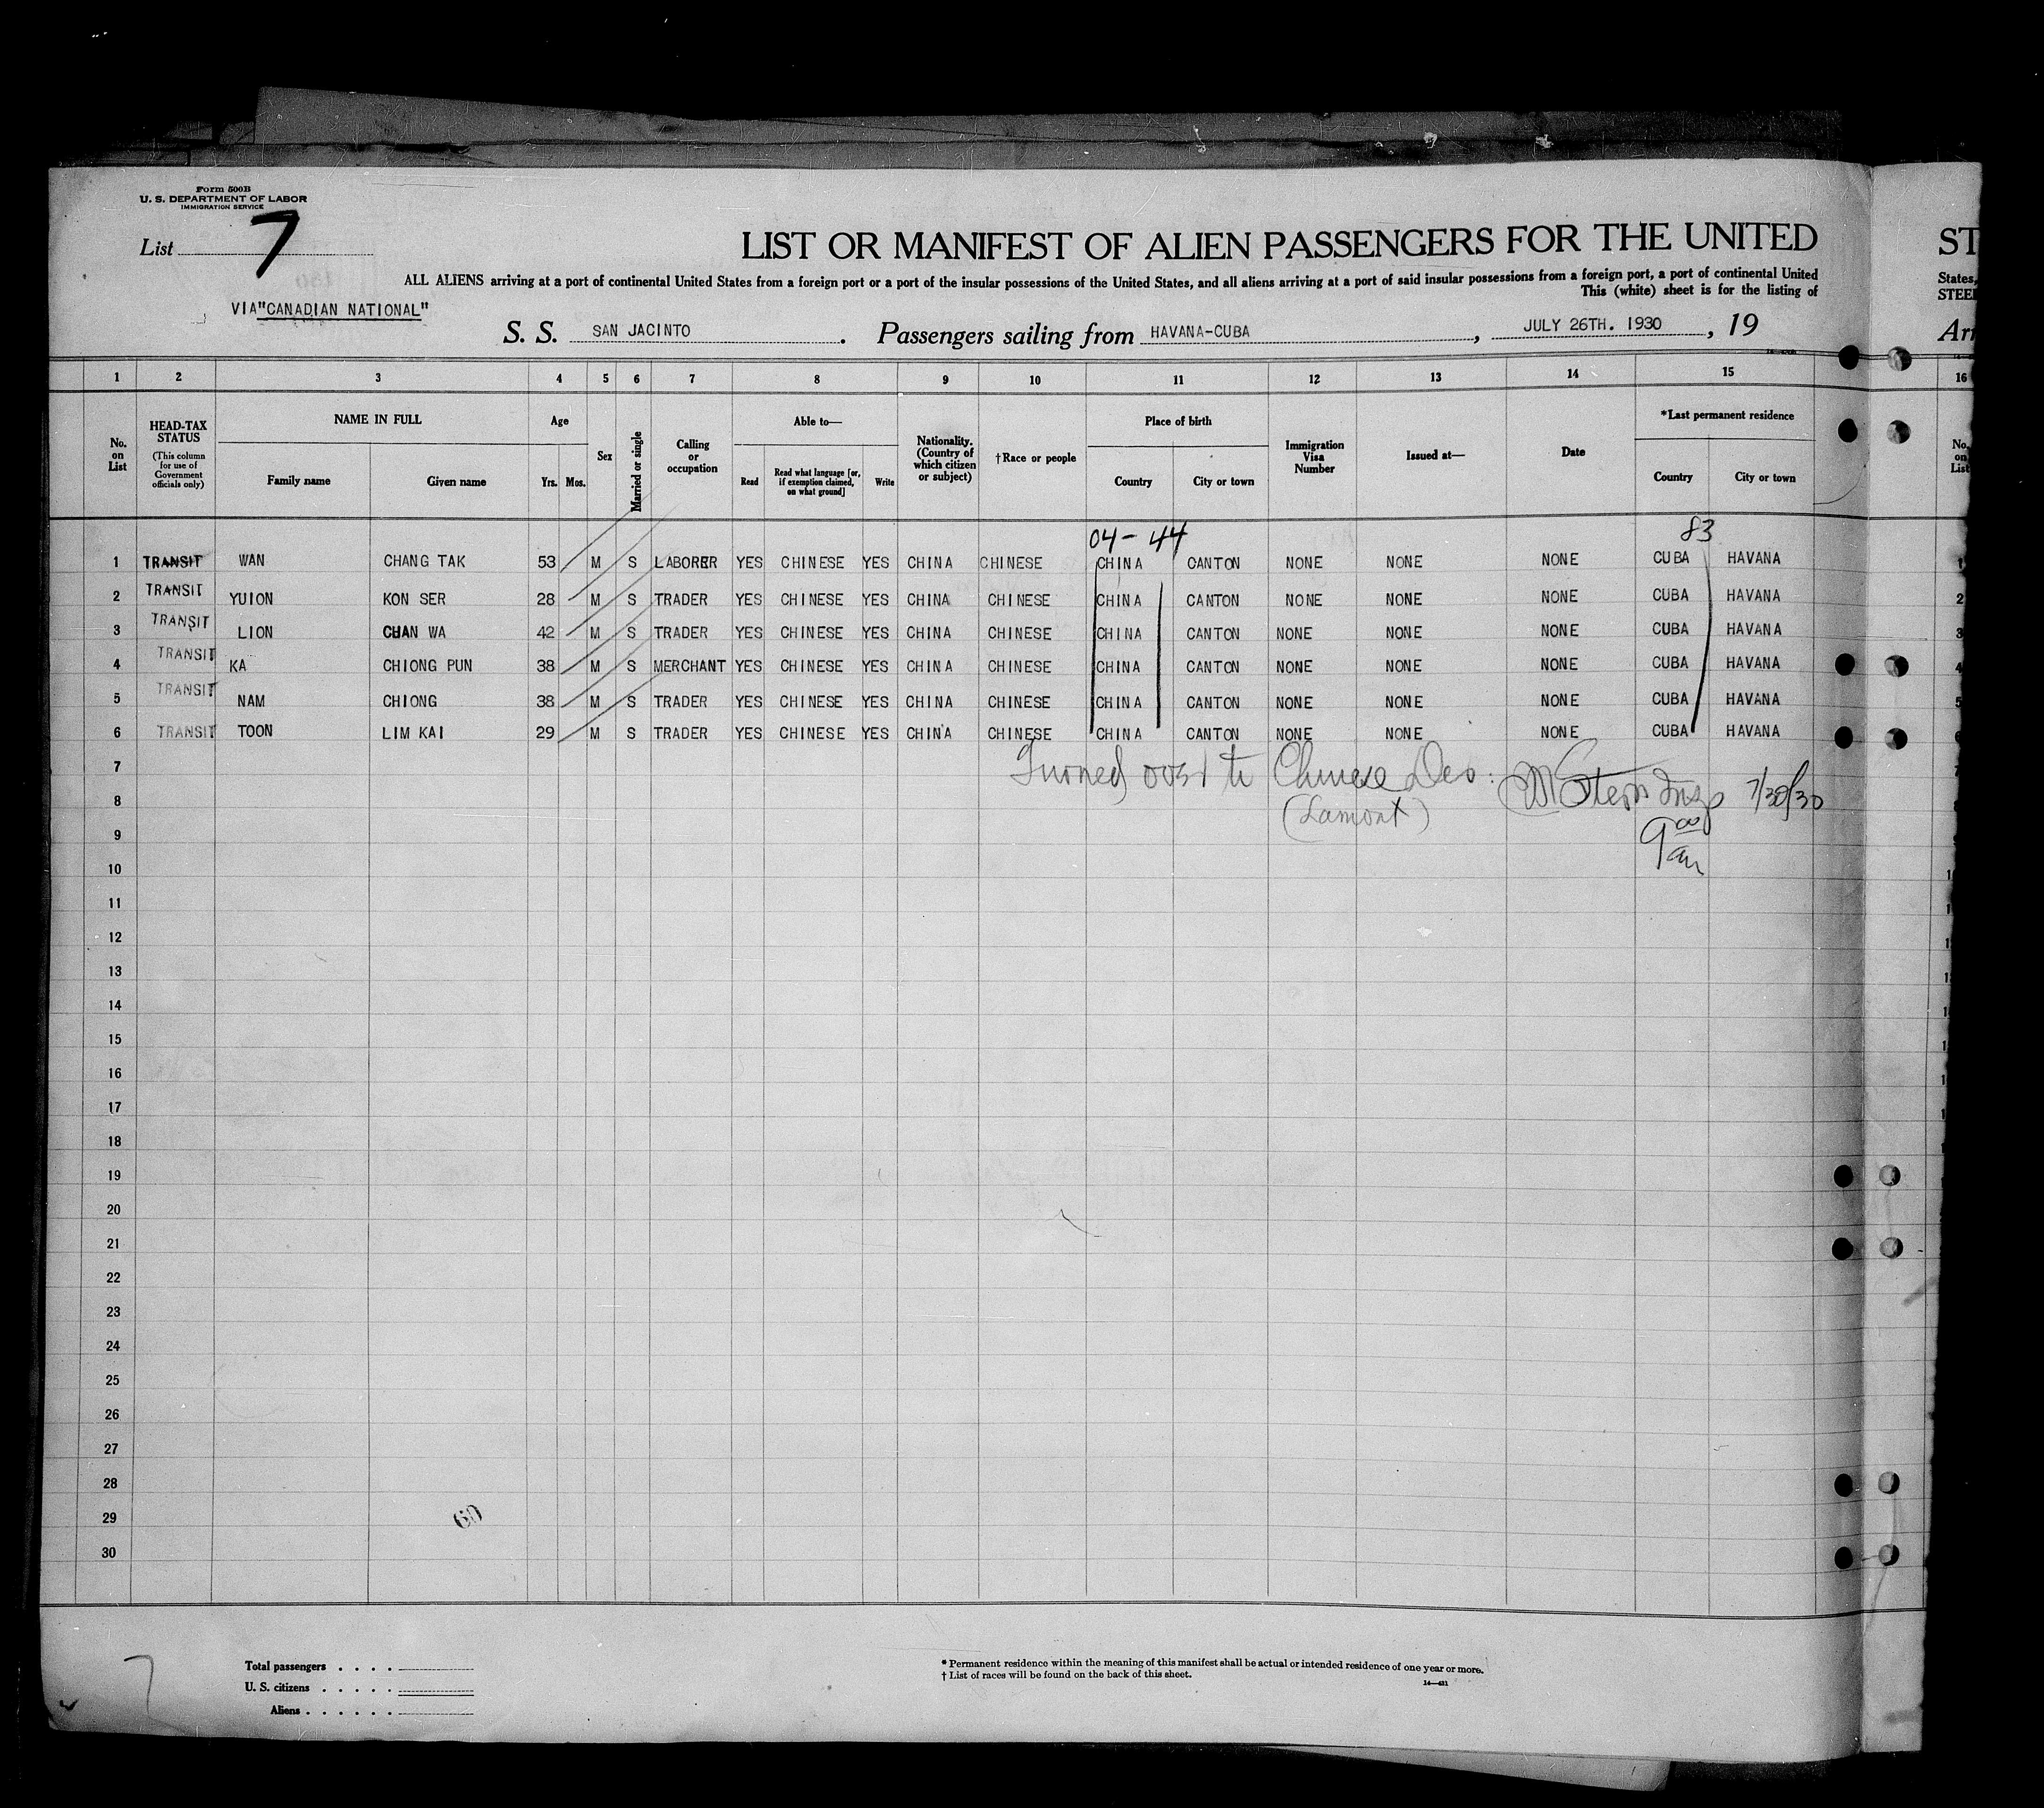 Form 500B
U. S. DEPARTMENT OF LABOR
IMMIGRATION SERVICE
List 7
LIST OR MANIFEST OF ALIEN PASSENGERS FOR THE UNITED
ALL ALIENS arriving at a port of continental United States from a foreign port or a port of the insular possessions of the United States, and all aliens arriving at a port of said insular possessions from a foreign port, a port of continental United
This (white) sheet is for the listing of
VIA "CANADIAN NATIONAL"
S. S. SAN JACINTO. Passengers sailing from HAVANA-CUBA, JULY 26TH. 1930, 19
ST
States,
STEE
Arr
1 2 3 4 5 6 7 8 9 10 11 12 13 14 15 16
No. on List
HEAD-TAX STATUS
(This column for use of Government officials only)
NAME IN FULL
Family name Given name
Age
Yrs. Mos.
Sex
Married or single
Calling or occupation
Able to—
Read Read what language [or, if exemption claimed, on what ground] Write
Nationality. (Country of which citizen or subject)
†Race or people
Place of birth
Country City or town
Immigration Visa Number
Issued at—
Date
*Last permanent residence
Country City or town
No. on List
04-44 83
1 TRANSIT WAN CHANG TAK 53 M S LABORER YES CHINESE YES CHINA CHINESE CHINA CANTON NONE NONE NONE CUBA HAVANA 1
2 TRANSIT YUION KON SER 28 M S TRADER YES CHINESE YES CHINA CHINESE CHINA CANTON NONE NONE NONE CUBA HAVANA 2
3 TRANSIT LION CHAN WA 42 M S TRADER YES CHINESE YES CHINA CHINESE CHINA CANTON NONE NONE NONE CUBA HAVANA 3
4 TRANSIT KA CHIONG PUN 38 M S MERCHANT YES CHINESE YES CHINA CHINESE CHINA CANTON NONE NONE NONE CUBA HAVANA 4
5 TRANSIT NAM CHIONG 38 M S TRADER YES CHINESE YES CHINA CHINESE CHINA CANTON NONE NONE NONE CUBA HAVANA 5
6 TRANSIT TOON LIM KAI 29 M S TRADER YES CHINESE YES CHINA CHINESE CHINA CANTON NONE NONE NONE CUBA HAVANA 6
7 to Chinese 7
8 (Lamont) Insp 7/30/30
9 9 00
10 am
11
12
13
14
15
16
17
18
19
20
21
22
23
24
25
26
27
28
29
60
30
7
Total passengers
U. S. citizens
Aliens
* Permanent residence within the meaning of this manifest shall be actual or intended residence of one year or more.
† List of races will be found on the back of this sheet.
14—431